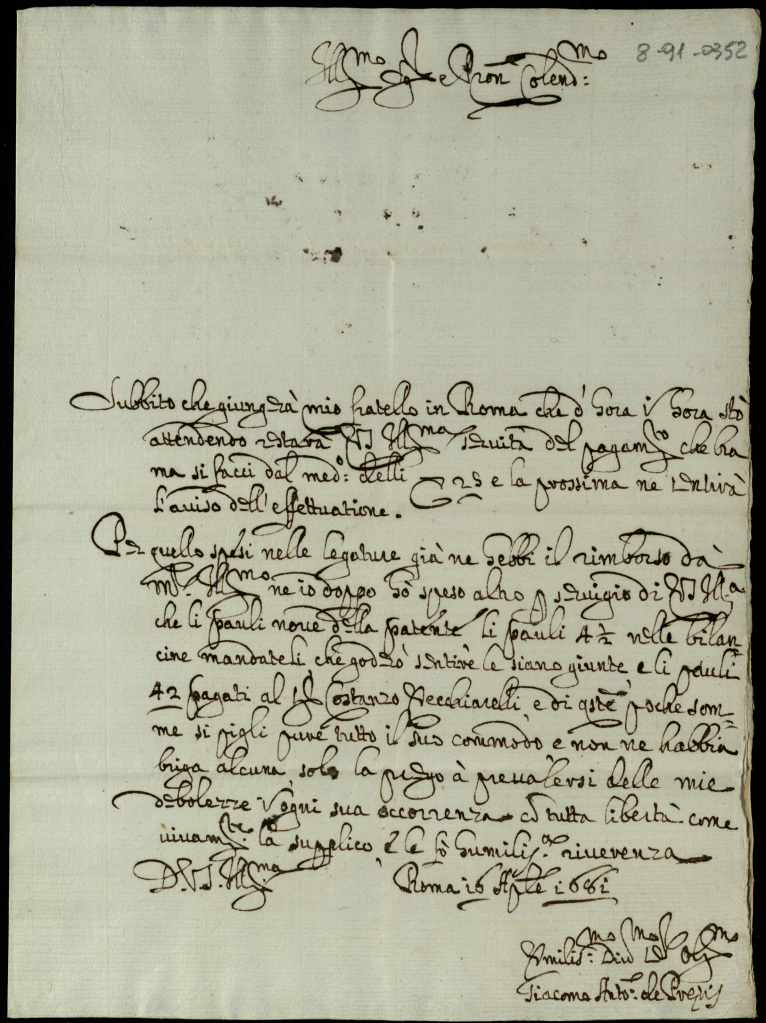 8-91-0352
Ill.mo Sig.re e Pron Colend.mo
Subbito che giungerà mio fratello in Roma che d'hora in hora stò
attendendo restarà V.S. Ill.ma servita del pagam.to che bra
ma si facci dal med.o delli 25 e la prossima ne sentirà
l'aviso dell'effettuatione.
Per quello spesi nelle legature già ne hebbi il rimborso da
Ill.mo ne io doppo hò speso altro p servigio di V.S. Ill.ma
che li pauli nove della patente li pauli 4½ nelle bilan
cine mandateli che goderò sentire le siano giunte e li pauli
42 pagati al Sig.r Costanzo Vecchiarelli e di qste poche som=
me si pigli pure tutto il suo commodo e non ne habbia
briga alcuna, solo la prego à prevalersi delle mie
debolezze in ogni sua occorrenza cō tutta libertà come
vivam.te la supplico e le fò humiliss.a riverenza
D. V.S. Ill.ma Roma 16 Aple 1681
Humilis.mo Div.mo Ser Obl.mo
Giacomo Ant.o de